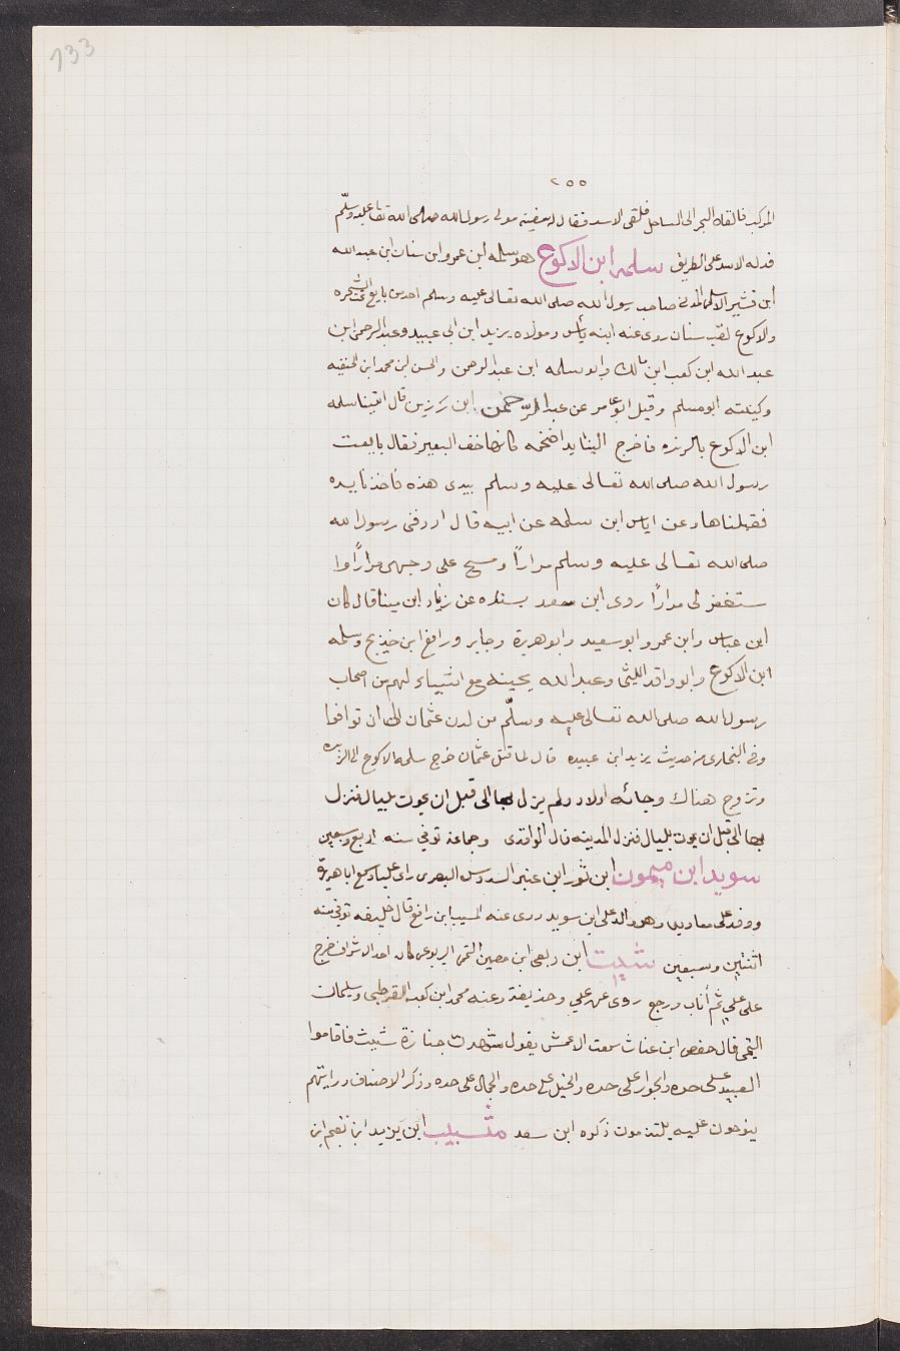 133
٢٥٥
المركب فالقاه البحر الى الساحل فلقى الاسد فقال له سفينه مولى رسول الله صلى الله تعا عليه وسلّم
فدله الاسد على الطريق سلمه ابن الاكوع هو سلمه ابن عمرو ابن سنان ابن عبد الله
ابن قشير الاسلمى المدنى صاحب رسول الله صلى الله تعالى عليه وسلم احد من بايع تحت الشجره
والاكوع لقب سنان روى عنه ابنه ياس ومولاه يزيد ابن ابى عبيد وعبد الرحمن ابن
عبد الله ابن كعب ابن مالك وابو سلمه ابن عبد الرحمن والحسن ابن محمد ابن الحنفيه
وكنيته ابو مسلم وقيل ابو عامر عن عبد الرّحمٰن ابن رزين قال اتينا سلمه
ابن الاكوع بالربذه فاخرج الينا يدا ضخمه كانها خف البعير فقال بايعت
رسول الله صلى الله تعالى عليه وسلم بيدى هذه فاخذنا يده
فقبلناها وعن اياس ابن سلمه عن ابيه قال اردفنى رسول الله
صلى الله تعالى عليه وسلم مرارًا ومسح على وجهى مرارًا وا
ستغفر لى مرارًا روى ابن سعد بسنده عن زياد ابن مينا قال كان
ابن عباس وابن عمر وابو سعيد وابو هريرة وجابر ورافع ابن خديج وسلمه
ابن الاكوع وابو واقد الليثى وعبد الله بحينه مع اشياء لهم من اصحاب
رسول الله صلى الله تعالى عليه وسلّم من لدن عثمان الى ان توافوا
وفى البخارى من حديث يزيد ابن عبيده قال لما قتل عثمان خرج سلمه الاكوع الى الربذه
وتزوج هناك وجائه اولاد ولم يزل بها الى قبل ان يموت بليال فنزل
بها الى قبل ان يموت بليال فنزل المدينه قال الواقدى وجماعة توفي سنه اربع وسبعين
سويد ابن ميمون ابن ثور ابن عنبر السدوسى البصرى راى عليا وسمع ابا هريرة
ووفد على معاويه وهو والد على ابن سويد روى عنه المسيب ابن رافع قال خليفه توفي سنه
اثنتين وسبعين شبث ابن ربعى ابن حصين التميمى اليربوعى كان احد الاشراف خرج
على علي ثم أناب ورجع روى عن علي وحذيفة وعنه محمد ابن كعب القرظى وسليمان
التيمى قال حفص ابن غياث سمعت الاعمش يقول شهدت جنازة شبث فاقاموا
العبيد على حده والجوار على حده والخيل على حده والجمال على حده وذكر الاصناف ورايتهم
ينوحون عليه يلتدمون ذكره ابن سعد شبيب ابن يزيد ابن نعيم ابن